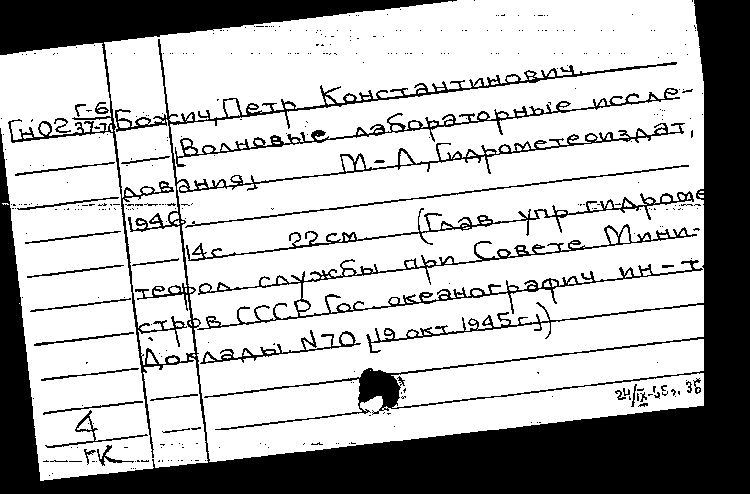 Гн02 Г-6 Божич, Петр Константинович.
37-70
[Волновые лабораторные иссле-
дования]    М-Л, Гидрометеоиздат,
1946.
14с.    22 см    (Глав упр гидроме
теорол. службы при Совете Мини-
стров СССР. Гос. океанографич. ин-т
Доклады. N70 [19 окт 1945г.])
4
гк
24/IX-65г.